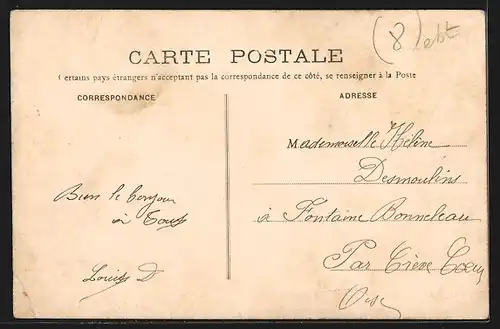 (8) ebt
CARTE POSTALE
Certains pays étrangers n'acceptant pas la correspondance de ce côté, se renseigner à la Poste
CORRESPONDANCE
ADRESSE
Mademoiselle Hélène
Desmoulins
à Fontaine Bonneleau
Par Crève Coeur
Oise
Bien le bonjour
à Tous
Louise D